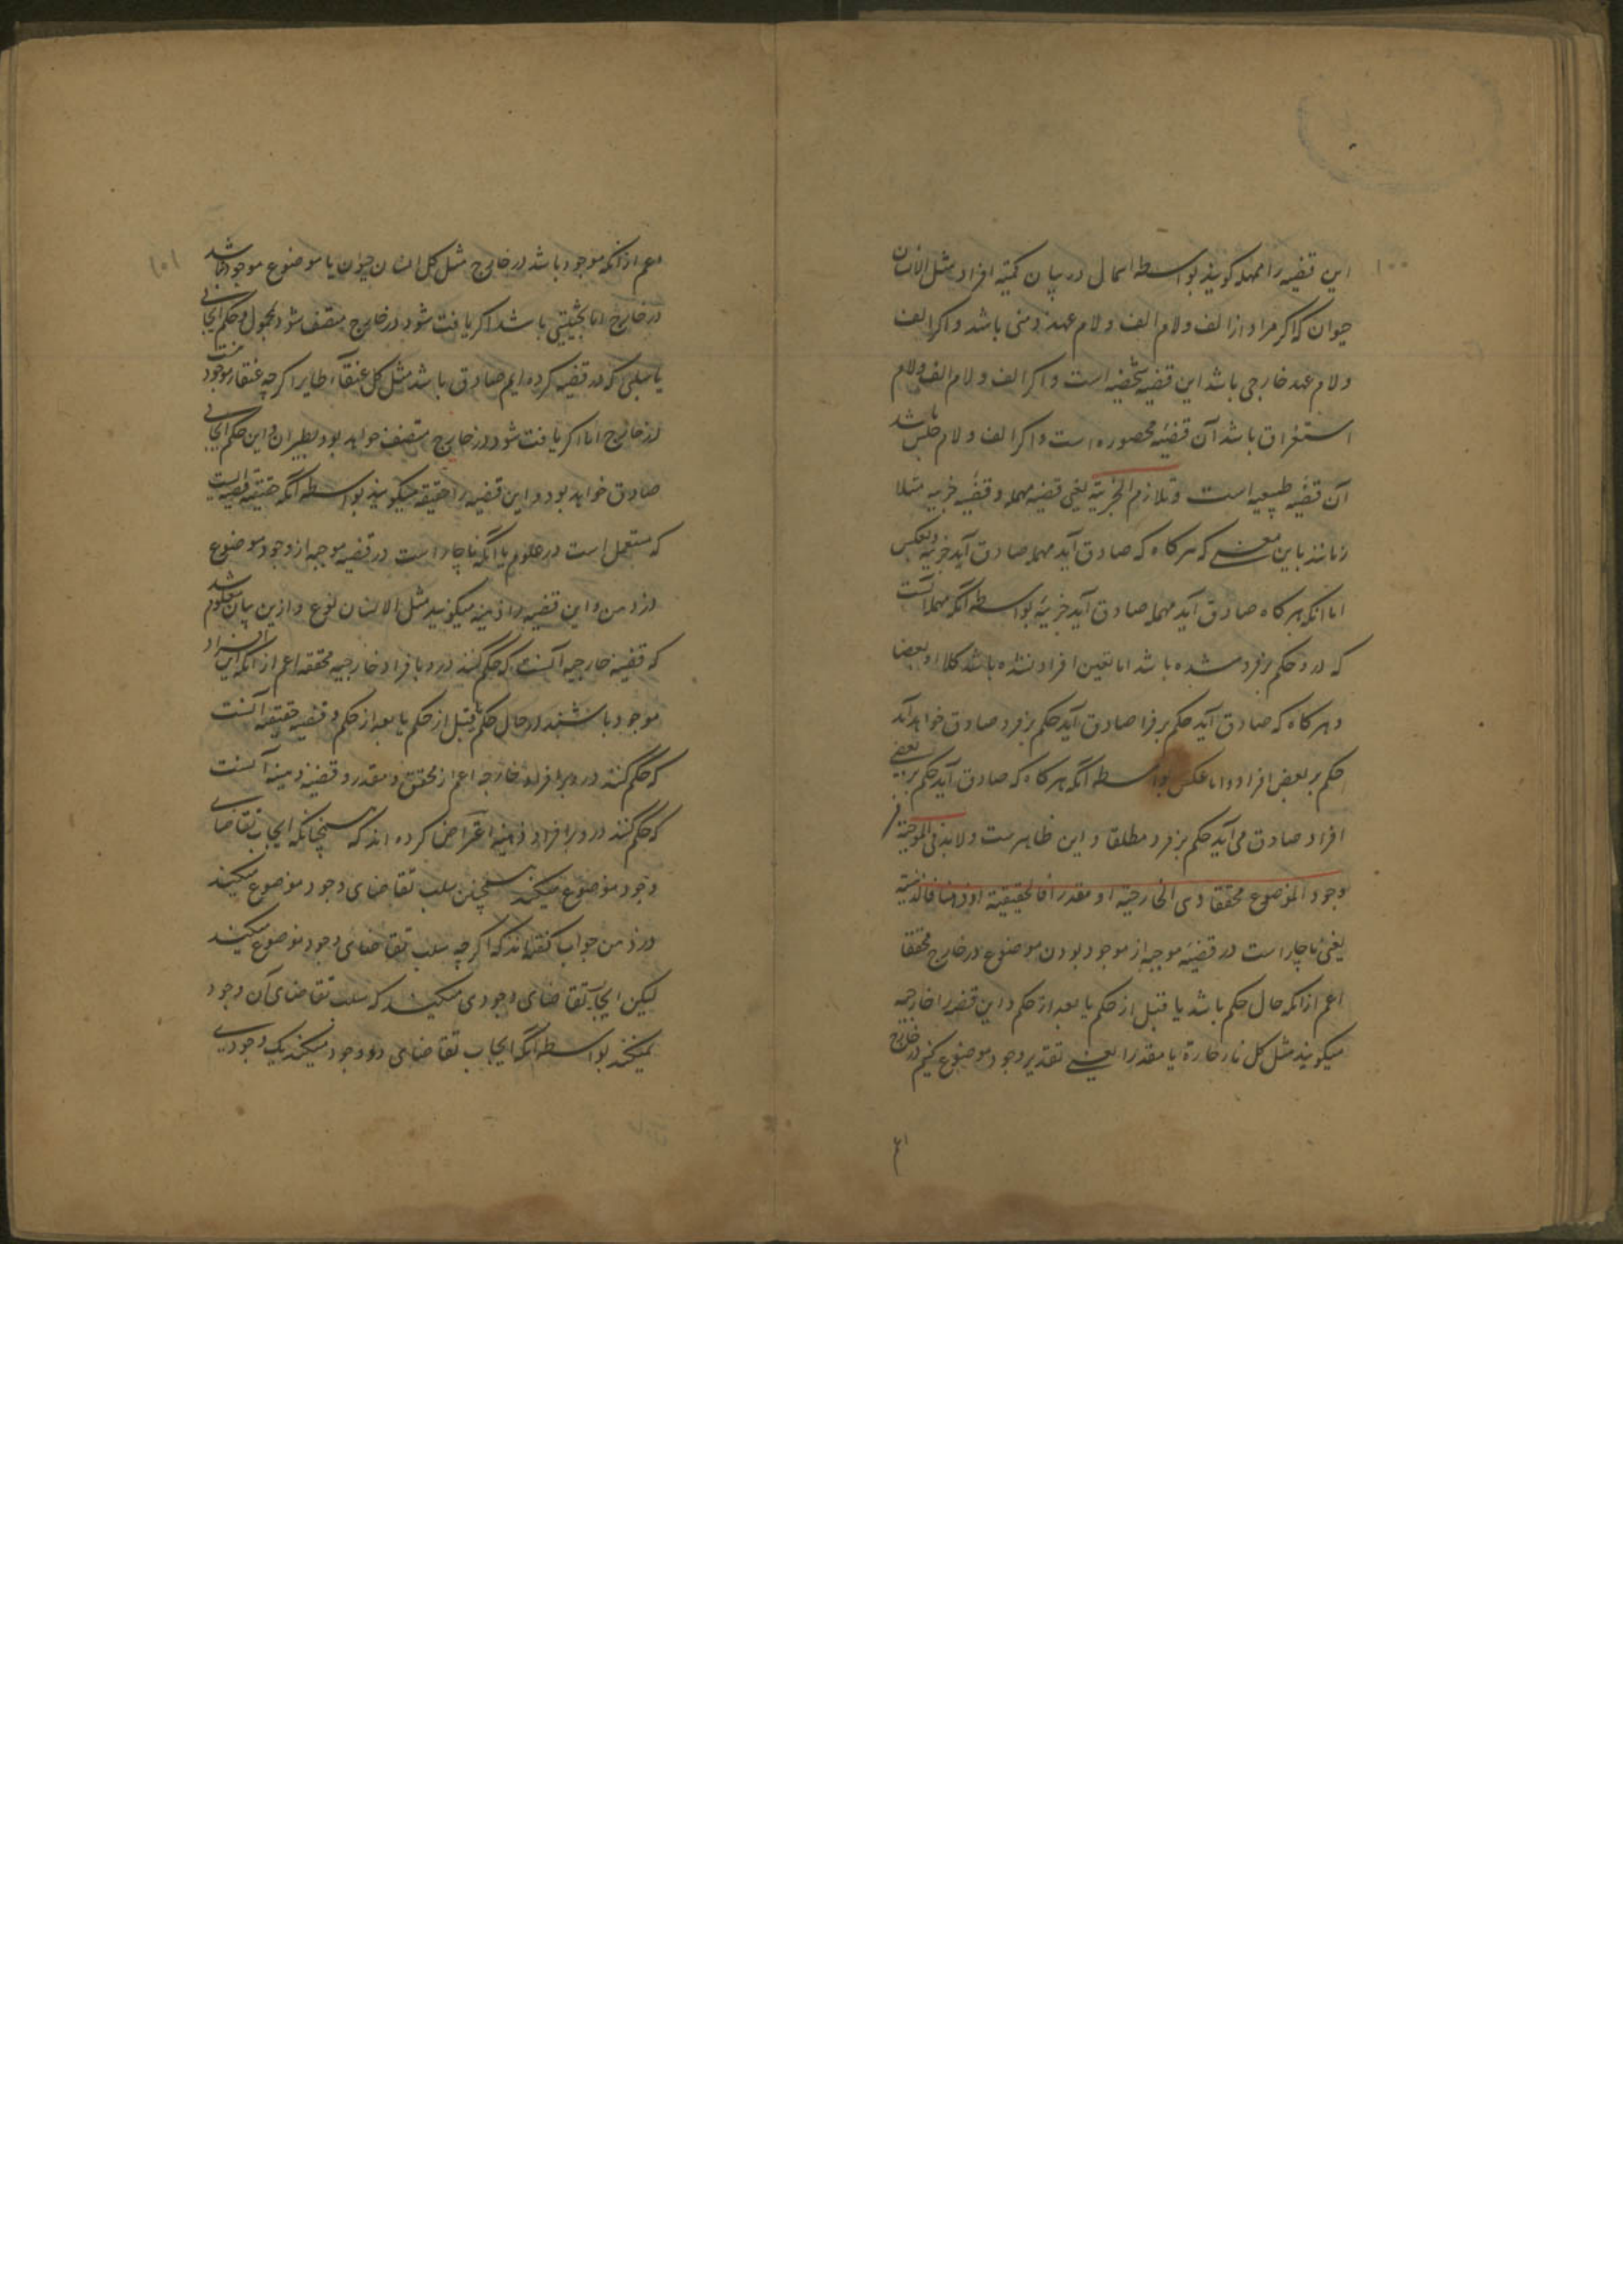 ۱۰۰
این قضیه را مهمله گویند بواسطه اهمال در بیان کمیّة افراد مثل الانسان
حیوان که اگر مراد از الف ولام الف ولام عهد ذهنی باشد واگر الف
ولام عهد خارجی باشد این قضیه شخصیه است واگر الف ولام الف ولام
استغراق باشد آن قضیهٔ محصوره است واگر الف ولام جنس باشد
آن قضیه طبیعیه است وتلازم الجزئیة یعنی قضیه مهمله وقضیه جزییه متلا
زمانند باین معنی که هر کاه که صادق آید مهمله صادق آید جزییه وبعکس
اما انکه هر کاه صادق آید مهمله صادق آید جزییه بواسطه آنکه مهمله آنست
که درو حکم بر فرد شده باشد اما تعین افراد نشده باشد کلا او بعضا
و هر کاه که صادق آید حکم بر فرد صادق خواهد آمد
حکم بر بعض افراد واما عکس بواسطه آنکه هر کاه که صادق آید حکم بر بعضی
افراد صادق می آید حکم بر فرد مطلقا و این ظاهرست ولا بد فی الموجبة من
وجود الموضوع محققا وهی الخارجیة او مقدرا فالحقیقیة او ذهنا فالذهنیة
یعنی ناچار است در قضیهٔ موجبه از موجود بودن موضوع در خارج محققا
اعم از انکه حال حکم باشد یا قبل از حکم یا بعد از حکم و این قضیه را خارجیه
میگویند مثل کل نار حارة یا مقدرا یعنی تقدیر وجود موضوع کنیم در خارج
۱۰۱
اعم از آنکه موجود باشد در خارج مثل کل انسان حیوان یا موضوع موجود نباشد
در خارج اما بحیثیتی باشد که اگر یافت شود در خارج متصف شود بمحمول و حکم ایجابی
یا سلبی که در قضیه کرده ایم صادق باشد مثل کل عنقآء طایر اگر چه عنقا موجود نیست
در خارج اما اگر یافت شود در خارج متصف خواهد بود بطیران و این حکم ایجابی
صادق خواهد بود و این قضیه را حقیقیه میگویند بواسطه آنکه حقیقة قضیه ایست
که مستعمل است در علوم یا آنکه ناچار است در قضیه موجبه از وجود موضوع
در ذهن و این قضیه را ذهنیه میگویند مثل الانسان نوع و ازین بیان معلوم شد
که قضیه خارجیه آنست که حکم کنند درو بافراد خارجیه محققه اعم از آنکه این افراد
موجود باشند در حال حکم یا قبل از حکم یا بعد از حکم و قضیه حقیقیه آنست
که حکم کنند درو بر افراد خارجیه اعم از محقق و مقدر و قضیه ذهنیه آنست
که حکم کنند درو بر افراد ذهنیه اعتراض کرده اند که همچنانکه ایجاب تقاضای
وجود موضوع میکند همچنین سلب تقاضای وجود موضوع میکند
در ذهن جواب گفته اند که اگر چه سلب تقاضای وجود موضوع میکند
لیکن ایجاب تقاضای وجودی میکند که سلب تقاضای آن وجود
نمیکند بواسطه آنکه ایجاب تقاضای دو وجود میکند یک وجودی